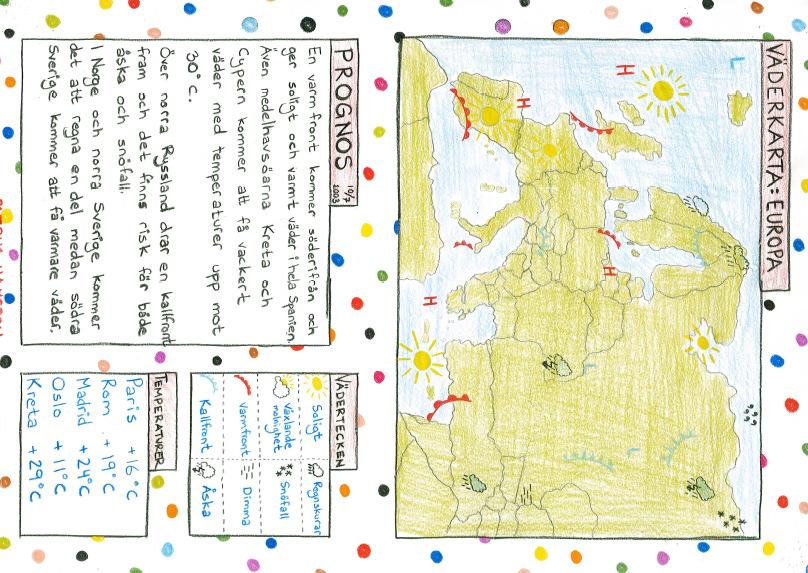 VÄDERKARTA: EUROPA
L
H
H
H
H
L
L
PROGNOS 10/7 2003
En varmfront kommer söderifrån och
ger soligt och varmt väder i hela Spanien.
Även medelhavsöarna Kreta och
Cypern kommer att få vackert
väder med temperaturer upp mot
30°C.
Över norra Ryssland drar en kallfront
fram och det finns risk för både
åska och snöfall.
I Norge och norra Sverige kommer
det att regna en del medan södra
Sverige kommer att få varmare väder.
VÄDERTECKEN
Soligt
Regnskurar
Växlande molnighet
Snöfall
Varmfront
Dimma
Kallfront
Åska
TEMPERATURER
Paris +16°C
Rom +19°C
Madrid +24°C
Oslo +11°C
Kreta +29°C